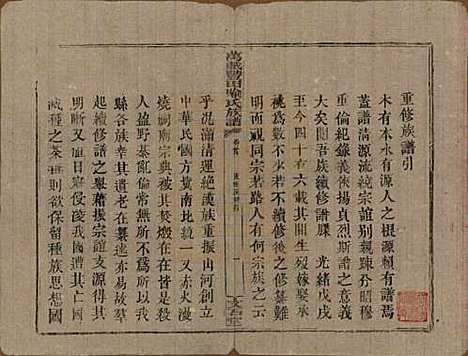 重修族譜引
木有本水有源人之根源賴有譜焉
蓋譜清源流統宗誼別親疎分昭穆
重倫紀錄義俠揚貞烈斯譜之意義
大矣閱吾族續修譜牒 光緒戊戌
至今四十有六載其閒生歿嫁娶承
祧為數不少若不續修後之修纂難
明而視同宗若路人有何宗族之云
乎況滿清運絕漢族重振山河創立
中華民國方冀南北統一又赤火漫
燒祠廟宗典被其焚燬在在皆是殺
人盈野綦亂倫常無所不為所以我
縣各族幸遺老在纂述亦易故羣
起續修譜之舉藉振宗誼支源得其
明晰又斯時也
滅種之茶 則欲保留種族思想國
萬載
田
氏族譜
卷首